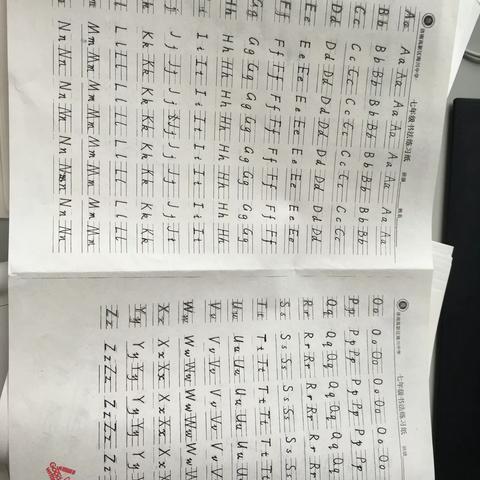 七年级书法练习纸
班级 姓名
Aa Aa Aa Aa Aa Aa Aa Aa Aa
Bb Bb Bb Bb Bb Bb Bb Bb Bb
Cc Cc Cc Cc Cc Cc Cc Cc Cc
Dd Dd Dd Dd Dd Dd Dd Dd Dd
Ee Ee Ee Ee Ee Ee Ee Ee Ee
Ff Ff Ff Ff Ff Ff Ff Ff Ff
Gg Gg Gg Gg Gg Gg Gg Gg Gg
Hh Hh Hh Hh Hh Hh Hh Hh Hh
Ii Ii Ii Ii Ii Ii Ii Ii
Jj Jj Jj Jj Jj Jj Jj Jj
Kk Kk Kk Kk Kk Kk Kk Kk
Ll Ll Ll Ll Ll Ll Ll Ll
Mm Mm Mm Mm Mm Mm Mm Mm
Nn Nn Nn Nn Nn Nn Nn Nn
七年级书法练习纸
班级
Oo Oo Oo Oo Oo Oo Oo
Pp Pp Pp Pp Pp Pp Pp
Qq Qq Qq Qq Qq Qq Qq
Rr Rr Rr Rr Rr Rr Rr
Ss Ss Ss Ss Ss Ss Ss
Tt Tt Tt Tt Tt Tt Tt
Uu Uu Uu Uu Uu Uu Uu
Vv Vv Vv Vv Vv Vv Vv
Ww Ww Ww Ww Ww Ww Ww
Xx Xx Xx Xx Xx Xx Xx
Yy Yy Yy Yy Yy Yy Yy
Zz Zz Zz Zz Zz Zz Zz